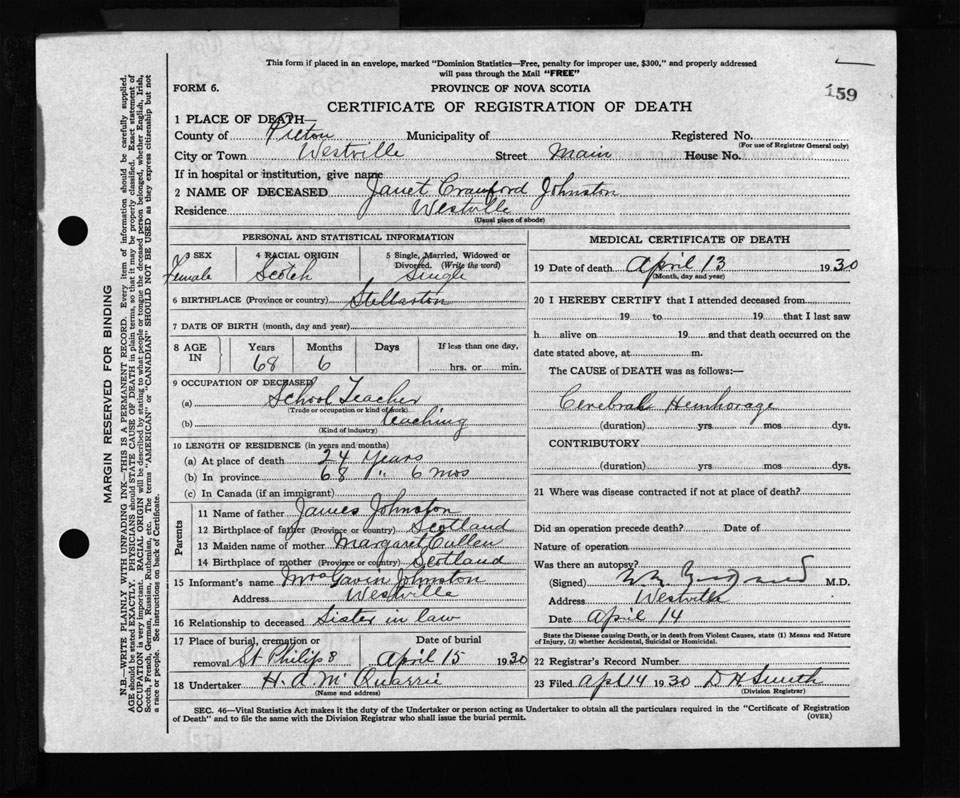 This form if placed in an envelope, marked "Dominion Statistics—Free, penalty for improper use, $300," and properly addressed
will pass through the Mail "FREE"
FORM 6.
PROVINCE OF NOVA SCOTIA
159
CERTIFICATE OF REGISTRATION OF DEATH
1 PLACE OF DEATH—
County of Pictou Municipality of Registered No.
(For use of Registrar General only)
City or Town Westville Street Main House No.
If in hospital or institution, give name
2 NAME OF DECEASED Janet Crawford Johnston
Residence Westville
(Usual place of abode)
PERSONAL AND STATISTICAL INFORMATION
3 SEX 4 RACIAL ORIGIN 5 Single, Married, Widowed or
Divorced. (Write the word)
Female Scotch Single
6 BIRTHPLACE (Province or country) Stellarton
7 DATE OF BIRTH (month, day and year)
8 AGE IN Years Months Days If less than one day,
68 6 hrs. or min.
9 OCCUPATION OF DECEASED
(a) School Teacher
(Trade or occupation or kind of work)
(b) teaching
(Kind of industry)
10 LENGTH OF RESIDENCE (in years and months)
(a) At place of death 24 Years
(b) In province 68 " 6 mos
(c) In Canada (if an immigrant)
Parents
11 Name of father James Johnston
12 Birthplace of father (Province or country) Scotland
13 Maiden name of mother Margaret Cullen
14 Birthplace of mother (Province or country) Scotland
15 Informant's name Mrs Gavin Johnston
Address Westville
16 Relationship to deceased Sister in law
17 Place of burial, cremation or Date of burial
removal St Philips April 15 1930
18 Undertaker H. A. McQuarrie
(Name and address)
MEDICAL CERTIFICATE OF DEATH
19 Date of death April 13 1930
(Month, day and year)
20 I HEREBY CERTIFY that I attended deceased from
19 to 19 that I last saw
h alive on 19 and that death occurred on the
date stated above, at m.
The CAUSE of DEATH was as follows:—
Cerebral Hemhorage
(duration) yrs mos dys.
CONTRIBUTORY
(duration) yrs. mos. dys.
21 Where was disease contracted if not at place of death?
Did an operation precede death? Date of
Nature of operation
Was there an autopsy?
(Signed) M.D.
Address Westville
Date April 14
State the Disease causing Death, or in death from Violent Causes, state (1) Means and Nature
of Injury, (2) whether Accidental, Suicidal or Homicidal.
22 Registrar's Record Number
23 Filed Apl 14 1930 D H Smith
(Division Registrar)
SEC. 46—Vital Statistics Act makes it the duty of the Undertaker or person acting as Undertaker to obtain all the particulars required in the "Certificate of Registration
of Death" and to file the same with the Division Registrar who shall issue the burial permit.
(OVER)
MARGIN RESERVED FOR BINDING
N.B.—WRITE PLAINLY WITH UNFADING INK—THIS IS A PERMANENT RECORD. Every item of information should be carefully supplied.
AGE should be stated EXACTLY. PHYSICIANS should STATE CAUSE OF DEATH in plain terms, so that it may be properly classified. Exact statement of
OCCUPATION is very important. RACIAL ORIGIN will be described by stating to what people or tongue the deceased person belonged, whether English, Irish,
Scotch, French, German, Russian, Ruthenian, etc. The terms "AMERICAN" or "CANADIAN" SHOULD NOT BE USED as they express citizenship but not
a race or people. See instructions on back of Certificate.